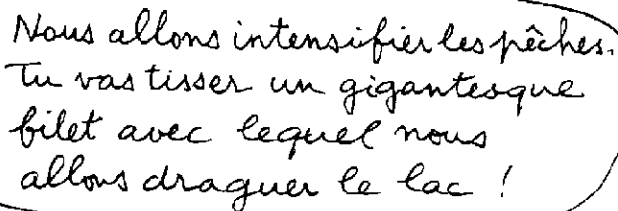 Nous allons intensifier les pêches.
Tu vas tisser un gigantesque
filet avec lequel nous
allons draguer le lac !